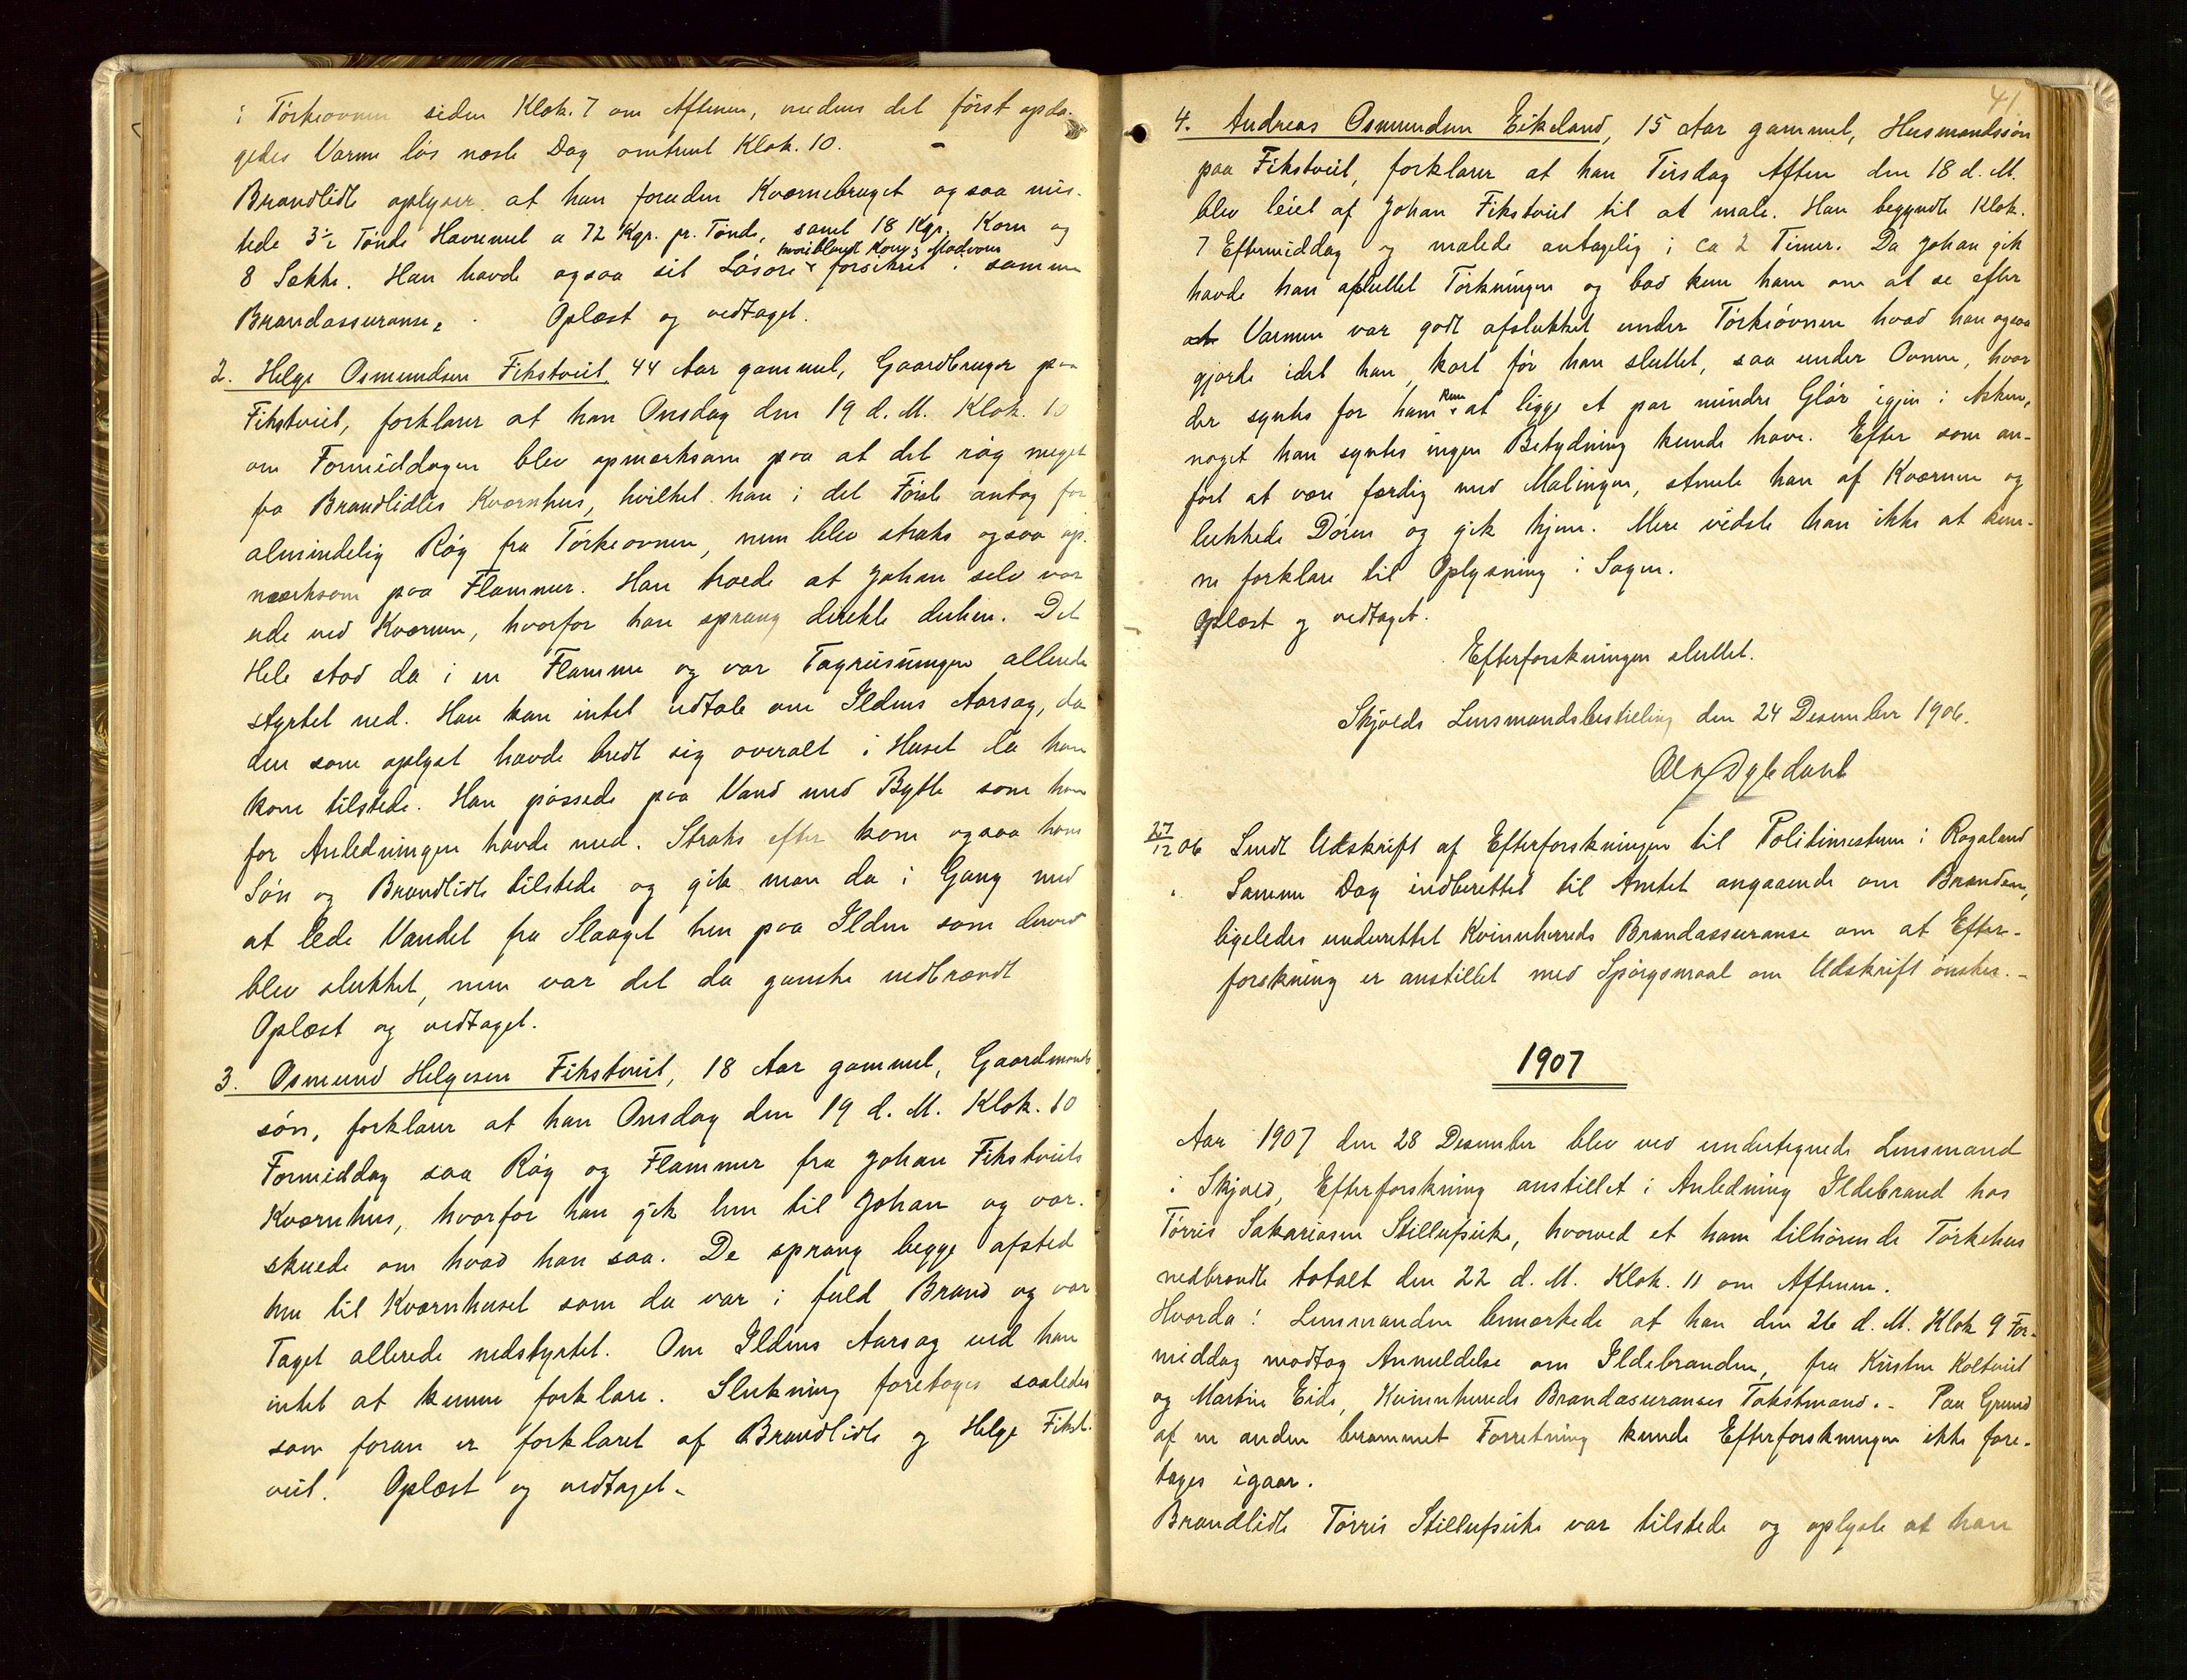 i Tørkeovnen siden Klok. 7 om Aftenen, medens det først opda-
gedes Varme løs næste Dag omtrent Klok. 10. –
Brandlidte oplyser at han foruden Kværnebruget ogsaa mis-
tede 3½ Tønde Havremel a 72 Kgr. pr. Tønde, samt 18 Kgr. Korn og
hvoriblandt Korn og Madvarer
8 Sække. Han havde ogsaa sit Løsøre forsikret i samme
Brandassuranse. Oplæst og vedtaget.
2. Helge Osmundsen Fikstveit, 44 Aar gammel, Gaardbruger paa
Fikstveit, forklarer at han Onsdag den 19 d. M. Klok. 10
om Formiddagen blev opmerksom paa at det røg meget
fra Brandlidtes Kværnhus, hvilket han i det Første antog for
almindelig Røg fra Tørkeovnen, men blev straks ogsaa op-
mærksom paa Flammer. Han troede at Johan selv var
ude ved Kværnen, hvorfor han sprang direkte derhen. Det
Hele stod da i en Flamme og var Tagreisningen allerede
styrtet ned. Han kan intet udtale om Ildens Aarsag, da
den som oplyst havde bredt sig overalt i Huset da han
kom tilstede. Han øssede paa Vand med Bytte som han
for Anledningen havde med. Straks efter kom ogsaa hans
Søn og Brandlidte tilstede og gik man da i Gang med
at lede Vandet fra Slaaget hen paa Ilden som derved
blev slukket, men var det da ganske nedbrændt
Oplæst og vedtaget.
3. Osmund Helgesen Fikstveit, 18 Aar gammel, Gaardmands-
søn, forklarer at han Onsdag den 19 d. M. Klok. 10
Formiddag saa Røg og Flammer fra Johan Fikstveits
Kværnhus, hvorfor han gik hen til Johan og var-
skuede om hvad han saa. De sprang begge afsted
hen til Kværnhuset som da var i fuld Brand og var
Taget allerede nedstyrtet. Om Ildens Aarsag ved han
intet at kunne forklare. Slukning foretoges saaledes
som foran er forklaret af Brandlidte og Helge Fikst-
veit. Oplæst og vedtaget.
41.
4. Andreas Osmundsen Eikeland, 15 Aar gammel, Husmandssøn
paa Fikstveit, forklarer at han Tirsdag Aften den 18 d. M.
blev leiet af Johan Fikstveit til at male. Han begyndte Klok.
7 Eftermiddag og malede antagelig i ca 2 Timer. Da Johan gik
havde han afsluttet Tørkningen og bad kun ham om at se efter
at Varmen var godt afslukket under Tørkeovnen hvad han ogsaa
gjorde idet han, kort før han sluttet, saa under Ovnen, hvor
kun
der syntes for ham at ligge et par mindre Glør igjen i Asken,
noget han syntes ingen Betydning kunde have. Efter som an-
ført at være færdig med Malingen, stnete han af Kværnen og
lukkede Døren og gik hjem. Mere vidste han ikke at kun-
ne forklare til Oplysning i Sagen.
Oplæst og vedtaget.
Efterforskningen sluttet.
Skjolds Lensmandsbestilling den 24 Desember 1906.
27/12 06 Sendt Udskrift af Efterforskningen til Politimesteren i Rogaland
" Samme Dag indberettet til Amtet angaaende om Branden,
ligeledes underrettet Kvinnherreds Brandassuranse om at Efter-
forskning er anstillet med Spørgsmaal om Udskrift ønskes. –
1907
Aar 1907 den 28 Desember blev ved undertegnede Lensmand
i Skjold, Efterforskning anstillet i Anledning Ildebrand hos
Tørris Sakariasen Stillufseike, hvorved et ham tilhørende Tørkehus
nedbrændte totalt den 22 d. M. Klok. 11 om Aftenen.
Hvorda! Lensmanden bemærkede at han den 26 d. M. Klok 9 For-
middag modtog Anmeldelse om Ildebranden, fra Kristen Koltveit
og Martin Eide, Kvinnherreds Brandasuranses Takstmænd. – Paa Grund
af en anden berammet Forretning kunde Efterforskningen ikke fore-
tages igaar.
Brandlidte Tørris Stillufseike var tilstede og oplyste at han